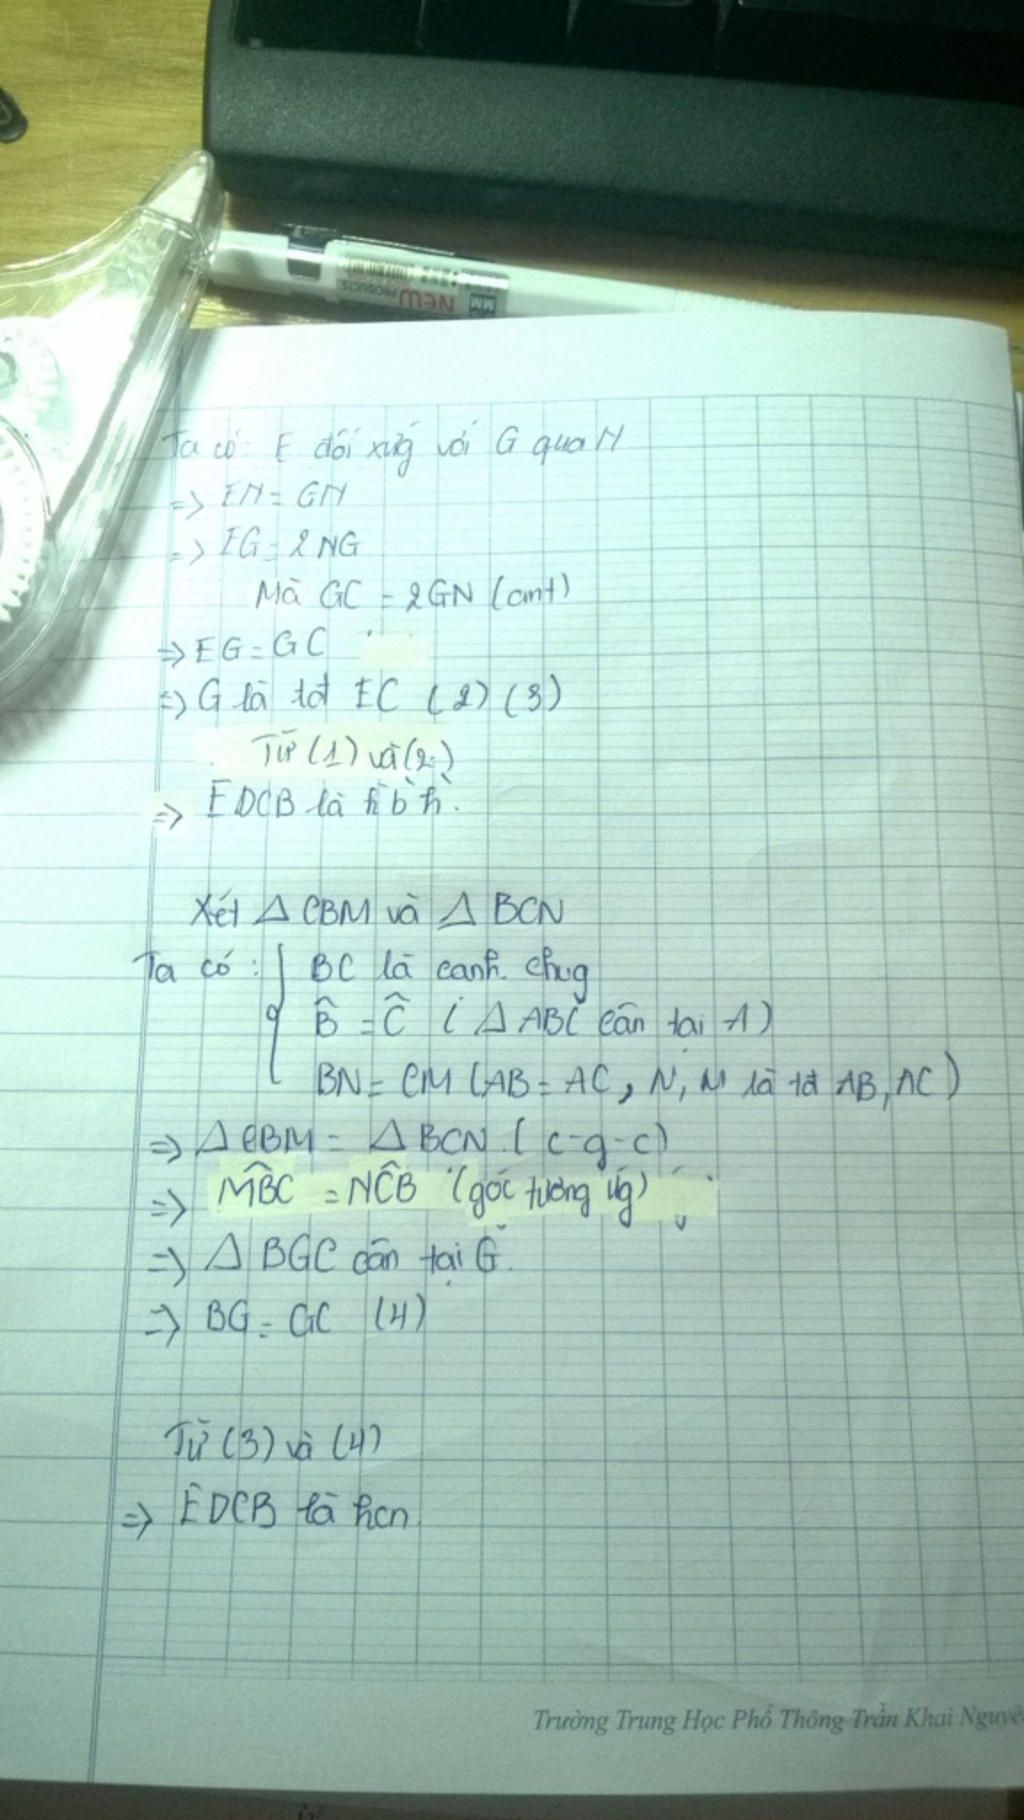 NEW
PRODUCTS
MM
Ta có: E đối xứg với G qua N
=> EN = GN
=> EG = 2NG
Mà GC = 2GN (cmt)
=> EG = GC
=> G là tđ EC (2) (3)
Từ (1) và (2)
=> EDCB là hbh.
Xét △ CBM và △ BCN
Ta có: { BC là cạnh chug
B̂ = Ĉ ( △ ABC cân tại A)
BN = CM (AB = AC, N, M là tđ AB, AC)
=> △ CBM = △ BCN (c-g-c)
=> MB̂C = NĈB (góc tương ứg)
=> △ BGC cân tại G.
=> BG = GC (4)
Từ (3) và (4)
=> EDCB là hcn.
Trường Trung Học Phổ Thông Trần Khai Nguyê